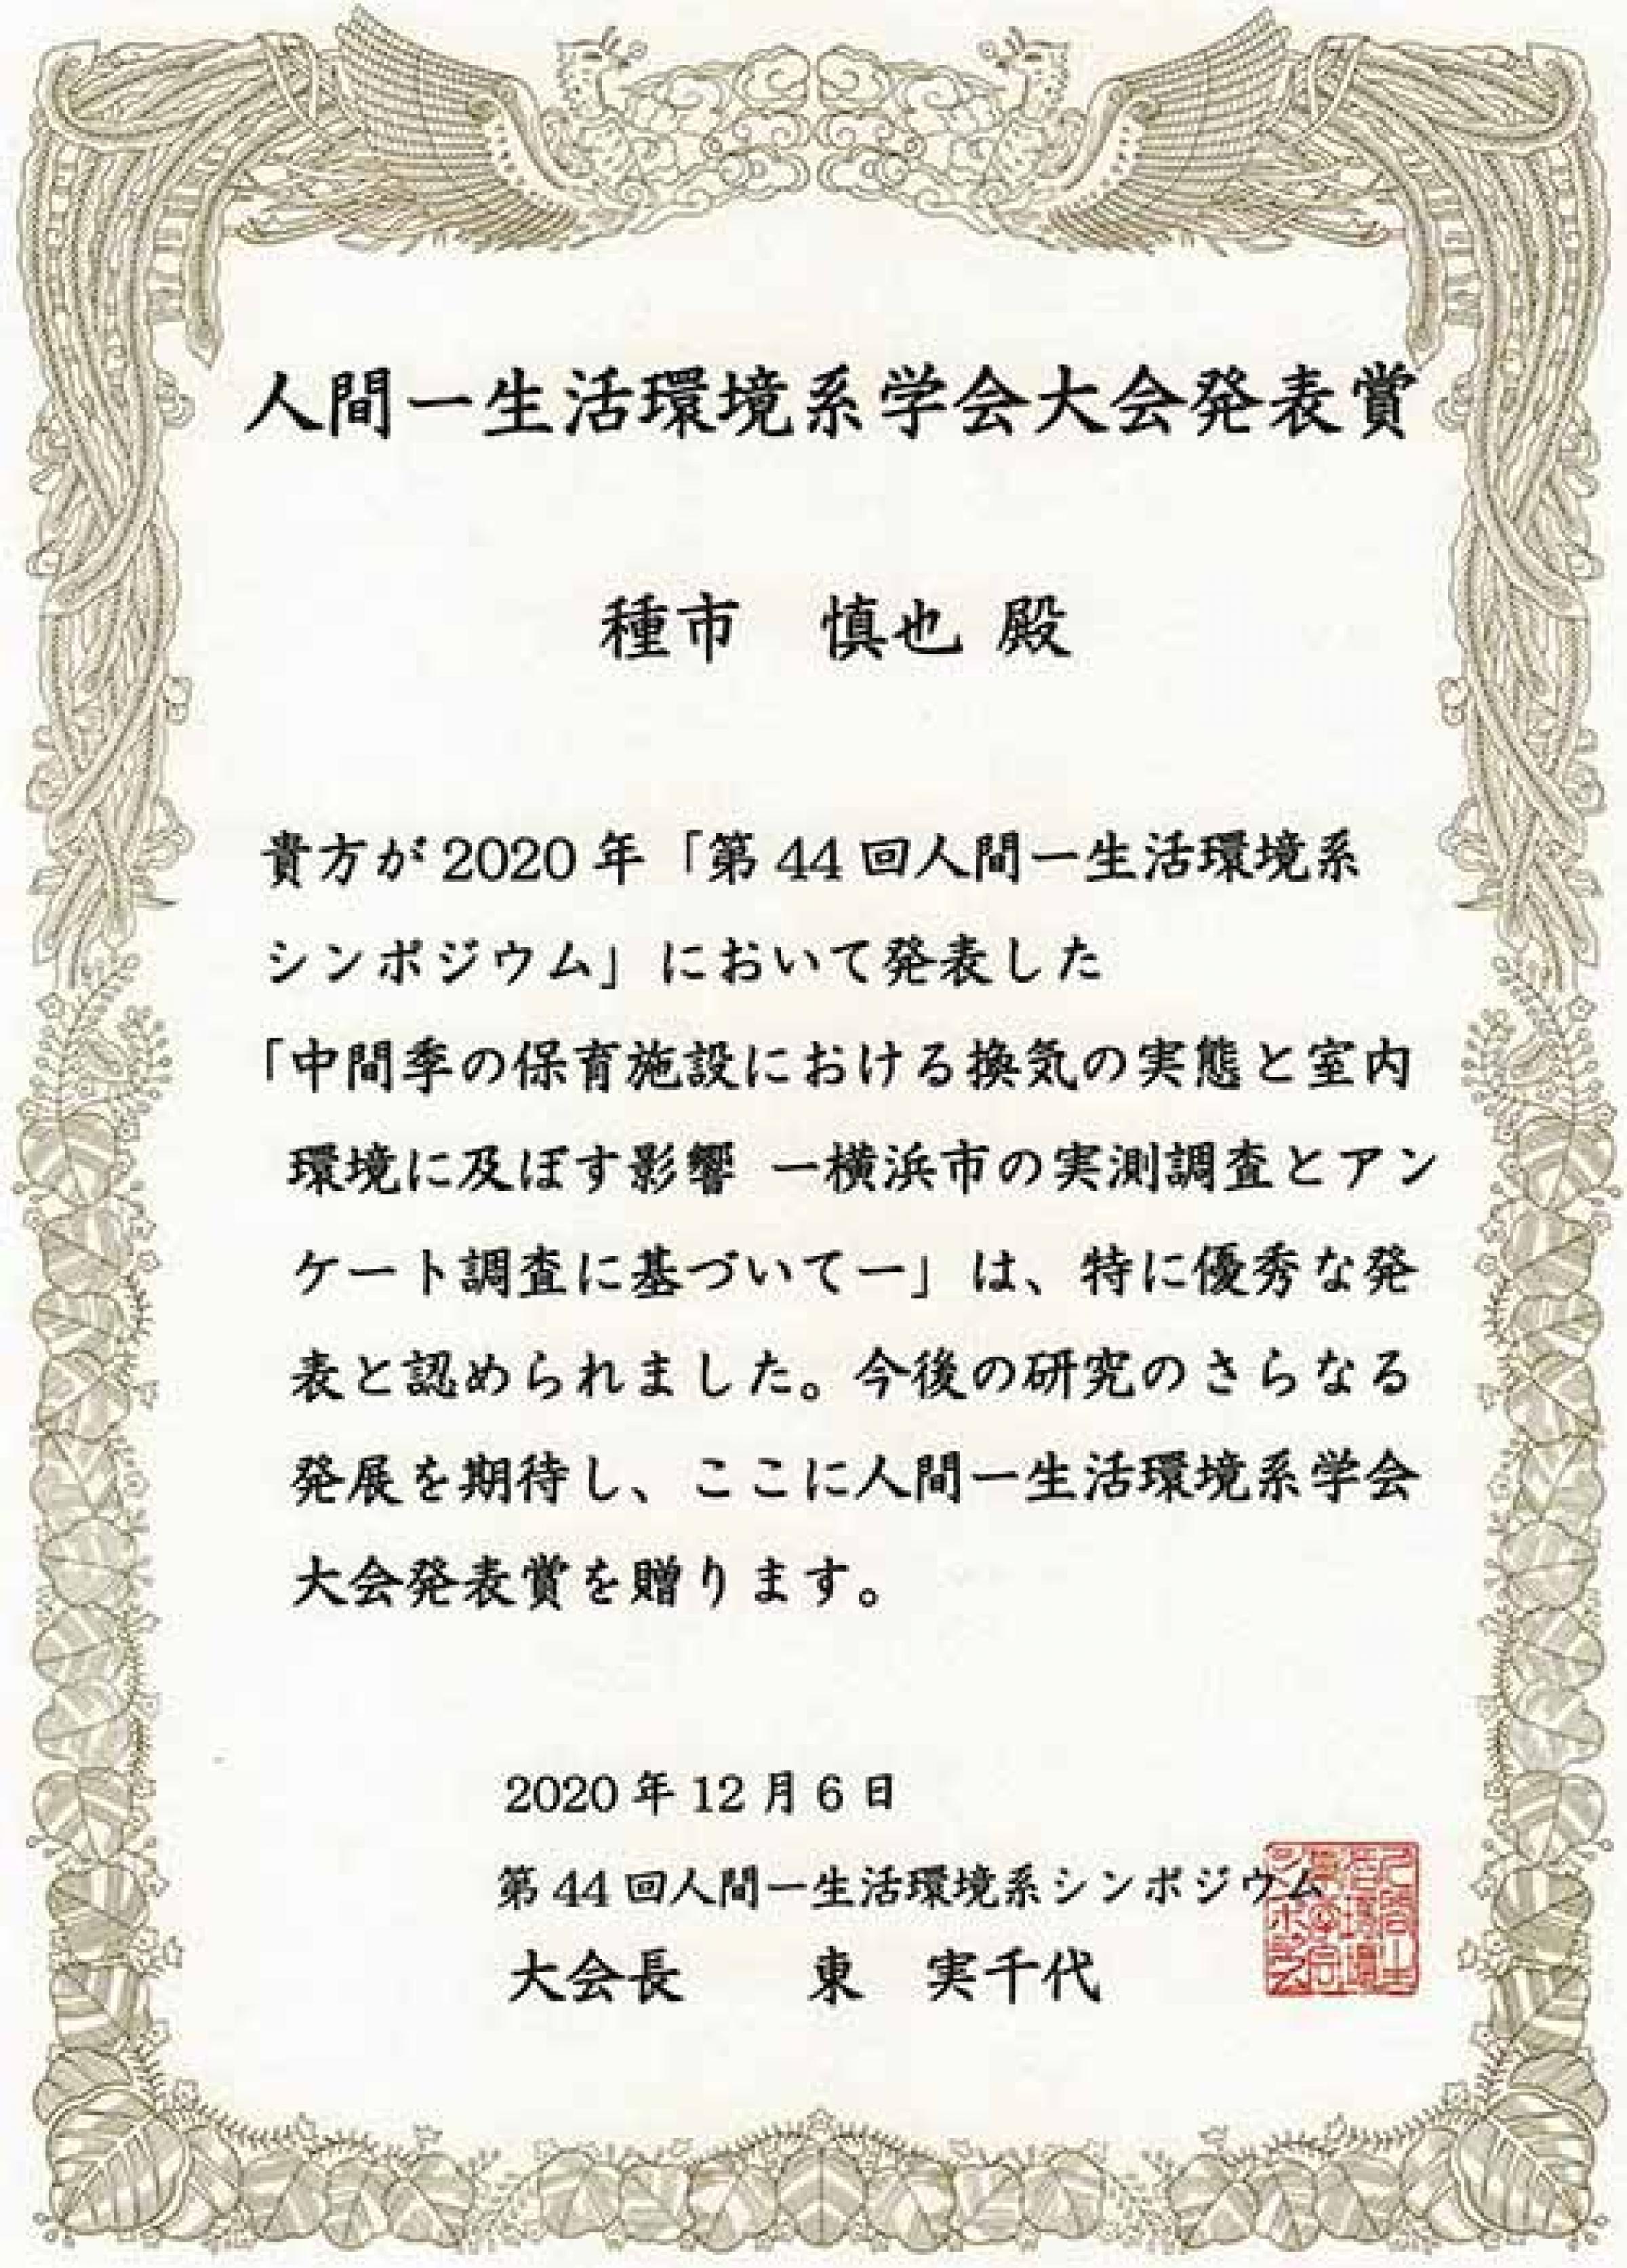 人間ー生活環境系学会大会発表賞
種市　慎也 殿
貴方が 2020 年「第 44 回人間ー生活環境系
シンポジウム」において発表した
「中間季の保育施設における換気の実態と室内
環境に及ぼす影響 ー横浜市の実測調査とアン
ケート調査に基づいてー」は、特に優秀な発
表と認められました。今後の研究のさらなる
発展を期待し、ここに人間ー生活環境系学会
大会発表賞を贈ります。
2020 年 12 月 6 日
第 44 回人間ー生活環境系シンポジウム
大会長　　東　実千代